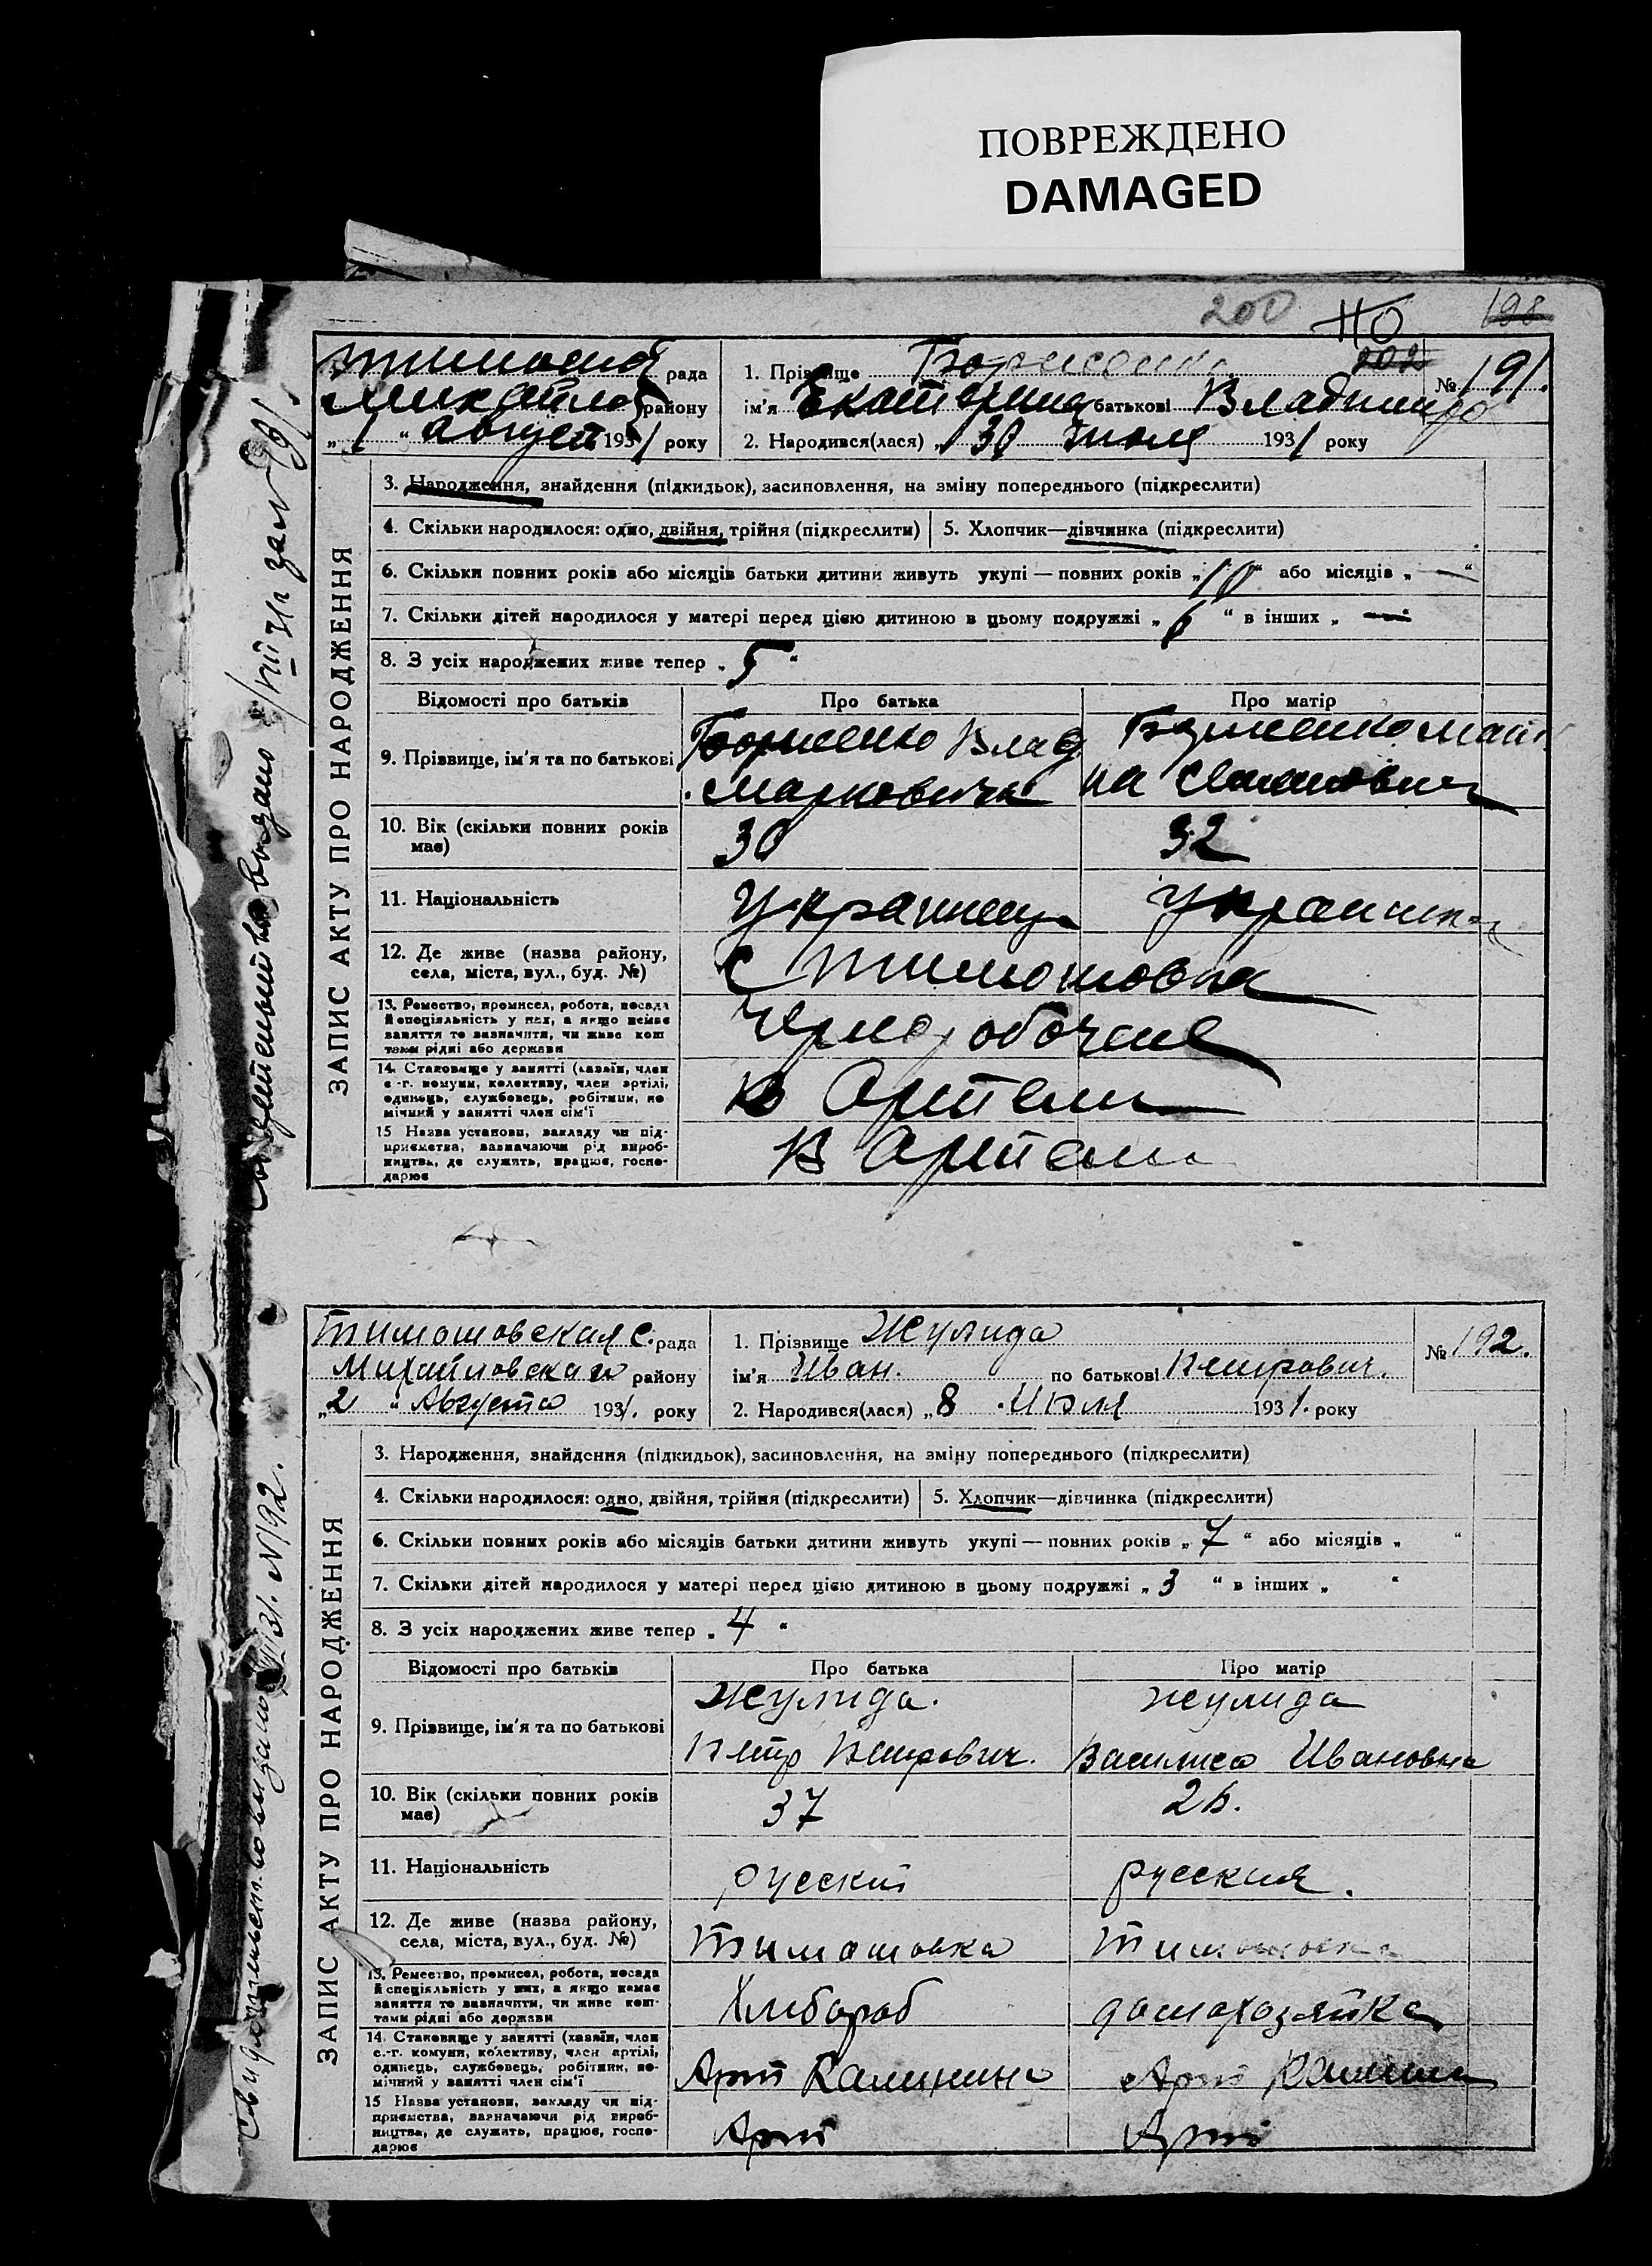 ПОВРЕЖДЕНО
DAMAGED
200 110 198
рада
району
„1“ август 1931 року
1. Прізвище Борисенко 202
ім'я Екатерина батькові Владимиро
№ 191.
2. Народився(лася) „30 Июля 1931 року
ЗАПИС АКТУ ПРО НАРОДЖЕННЯ
3. Народження, знайдення (підкидьок), засиновлення, на зміну попереднього (підкреслити)
4. Скільки народилося: одно, двійня, трійня (підкреслити) 5. Хлопчик—дівчинка (підкреслити)
6. Скільки повних років або місяців батьки дитини живуть укупі — повних років „10“ або місяців „—“
7. Скільки дітей народилося у матері перед цією дитиною в цьому подружжі „6“ в інших „—
8. З усіх народжених живе тепер „5“
Відомості про батьків Про батька Про матір
9. Прізвище, ім'я та по батькові
Борисенко Влад
Марковича
10. Вік (скільки повних років має) 30 32
11. Національність украинец украинка
12. Де живе (назва району, села, міста, вул., буд. №)
С Тимошовка
13. Ремество, промисел, робота, посада
й спеціяльність у них, а якщо немає
заняття то визначити, чи живе кош
тами рідні або держави
14. Становище у занятті (хазяїн, член
с.-г. комуни, колективу, член артілі,
одинець, службовець, робітник, по
мічний у занятті член сім'ї
В Артели
15 Назва установи, закладу чи під-
приємства, зазначаючи рід вироб-
ництва, де служить, працює, госпо-
дарює
В Артели
Тимошовская с. рада
Михайловскаго району
„2“ Августа 1931. року
1. Прізвище Жулида
ім'я Иван. по батькові Петрович.
№ 192.
2. Народився(лася) „8 Июля 1931. року
ЗАПИС АКТУ ПРО НАРОДЖЕННЯ
3. Народження, знайдення (підкидьок), засиновлення, на зміну попереднього (підкреслити)
4. Скільки народилося: одно, двійня, трійня (підкреслити) 5. Хлопчик—дівчинка (підкреслити)
6. Скільки повних років або місяців батьки дитини живуть укупі — повних років „7“ або місяців „ “
7. Скільки дітей народилося у матері перед цією дитиною в цьому подружжі „3“ в інших „ “
8. З усіх народжених живе тепер „4“
Відомості про батьків Про батька Про матір
9. Прізвище, ім'я та по батькові
Жулида. Жулида
Петр Петрович. Василиса Ивановна
10. Вік (скільки повних років має) 37
11. Національність русский русская.
12. Де живе (назва району, села, міста, вул., буд. №)
Тимошовка Тимошовка
13. Ремество, промисел, робота, посада
й спеціяльність у них, а якщо немає
заняття то визначити, чи живе кош-
тами рідні або держави
Хлибороб домохозяйка
14. Становище у занятті (хазяїн, член
с.-г. комуни, колективу, член артілі,
одинець, службовець, робітник, по-
мічний у занятті член сім'ї
Арт Калинина Арт Калинина
15 Назва установи, закладу чи під-
приємства, зазначаючи рід вироб-
ництва, де служить, працює, госпо-
дарює
Арт Арт